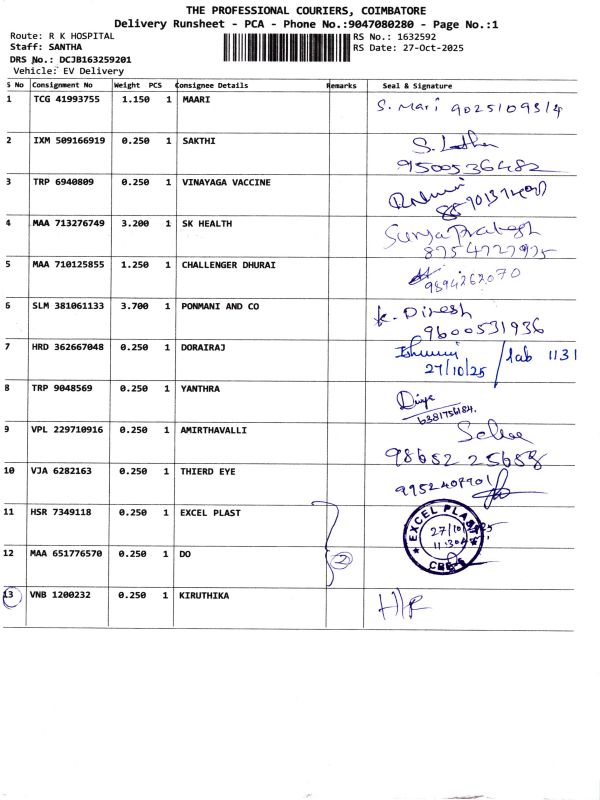 THE PROFESSIONAL COURIERS, COIMBATORE
Delivery Runsheet - PCA - Phone No.:9047080280 - Page No.:1
Route: R K HOSPITAL RS No.: 1632592
Staff: SANTHA RS Date: 27-Oct-2025
DRS No.: DCJB163259201
Vehicle: EV Delivery
S No Consignment No Weight PCS Consignee Details Remarks Seal & Signature
1 TCG 41993755 1.150 1 MAARI S. Mari 9025109314
2 IXM 509166919 0.250 1 SAKTHI
9500536482
3 TRP 6940809 0.250 1 VINAYAGA VACCINE
4 MAA 713276749 3.200 1 SK HEALTH Surya Prakash
8754727975
5 MAA 710125855 1.250 1 CHALLENGER DHURAI
9894262070
6 SLM 381061133 3.700 1 PONMANI AND CO K. Dinesh
9600531936
7 HRD 362667048 0.250 1 DORAIRAJ /lab 1131
27/10/25
8 TRP 9048569 0.250 1 YANTHRA
6381756184.
9 VPL 229710916 0.250 1 AMIRTHAVALLI
98652 25658
10 VJA 6282163 0.250 1 THIERD EYE
11 HSR 7349118 0.250 1 EXCEL PLAST EXCEL PLAST
27/10/25
12 MAA 651776570 0.250 1 DO 2
13 VNB 1200232 0.250 1 KIRUTHIKA H/R